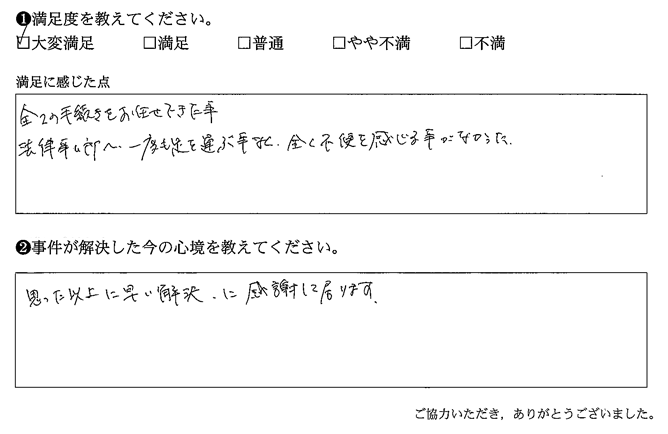 ❶満足度を教えてください。
☑大変満足 □満足 □普通 □やや不満 □不満
満足に感じた点
全ての手続きをお任せできた事
法律事ム所へ、一度も足を運ぶ事なく、全く不便を感じる事がなかった。
❷事件が解決した今の心境を教えてください。
思った以上に早い解決、に感謝して居ります。
ご協力いただき，ありがとうございました。